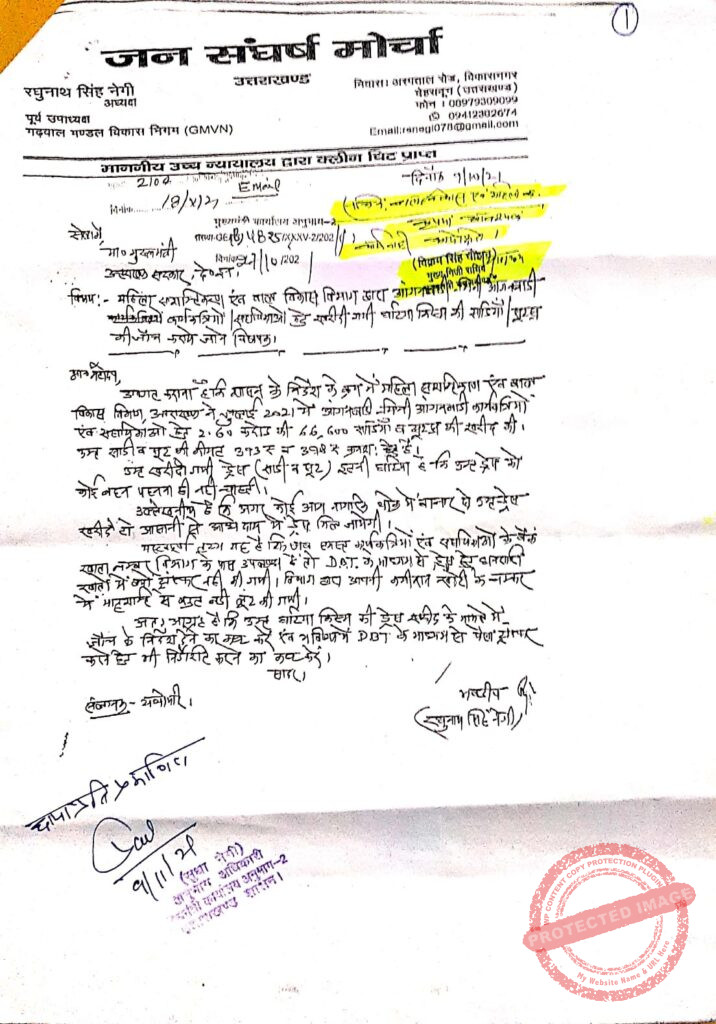 1
जन संघर्ष मोर्चा
उत्तराखण्ड
रघुनाथ सिंह नेगी
अध्यक्ष
पूर्व उपाध्यक्ष
गढ़वाल मण्डल विकास निगम (GMVN)
निवास: अस्पताल रोड, विकासनगर
देहरादून (उत्तराखण्ड)
फोन : 00979309099
09412302674
माननीय उच्च न्यायालय द्वारा क्लीन चिट प्राप्त
Email
दिनांक
मुख्यमंत्री कार्यालय अनुभाग-2
सेवा में
मा० मुख्यमंत्री
उत्तराखण्ड सरकार, देहरादून
(विक्रम सिंह चौहान)
मुख्य निजी सचिव
विषय:- महिला सशक्तिकरण एवं बाल विकास विभाग द्वारा आंगनबाडी मिनी आंगनबाडी
कार्यकत्रियों/सहायिकाओं हेतु खरीदी गयी घटिया किस्म की साडियों/सूटस
की जाँच कराये जाने विषयक।
मान्य महोदय,
अवगत कराना है कि शासन के निर्देश के क्रम में महिला सशक्तिकरण एवं बाल
विकास विभाग, उत्तराखण्ड ने जुलाई 2021 में आंगनबाडी मिनी आंगनबाडी कार्यकत्रियों
एवं सहायिकाओं हेतु 2.60 करोड की 66,600 साडियों व सूटस की खरीद की।
उक्त साडी व सूट की कीमत 393रू व 398रू क्रमशः है।
उक्त खरीदी गयी ड्रेस (साडी व सूट) इतनी घटिया है कि उक्त ड्रेस को
कोई बहन पहनना ही नहीं चाहती।
उल्लेखनीय है कि अगर कोई आम नागरिक थोक में बाजार से उक्त ड्रेस
खरीदे तो आसानी से आधे दाम में ड्रेस मिल जायेगी।
महत्वपूर्ण तथ्य यह है कि जब समस्त कार्यकत्रियों एवं सहायिकाओं के बैंक
खाता नम्बर विभाग के पास उपलब्ध हैं तो D.B.T. के माध्यम से ड्रेस हेतु धनराशि
खातों में क्यों ट्रांसफर नहीं की गयी। विभाग द्वारा अपनी कमीशन खोरी के चक्कर
में मातृशक्ति से बहुत बडी लूट की गयी।
अतः आग्रह है कि उक्त घटिया किस्म की ड्रेस खरीद के मामले में
जाँच के निर्देश देने का कष्ट करें एवं भविष्य में DBT के माध्यम से पैसा ट्रांसफर
करने हेतु भी निर्देशित करने का कष्ट करें।
सादर।
संलग्नक- यथोपरि।
भवदीय
(रघुनाथ सिंह नेगी)
छायाप्रति प्रमाणित
(सुधा नेगी)
अनुभाग अधिकारी
मुख्यमंत्री कार्यालय अनुभाग-2
उत्तराखण्ड शासन।
WP CONTENT COPY PROTECTION PLUGIN
PROTECTED IMAGE
My Website Name & URL Here